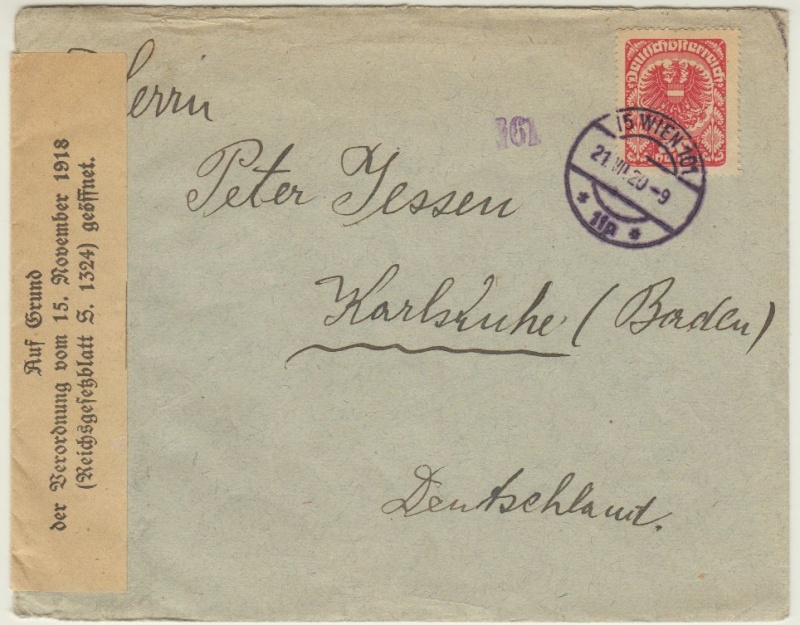 Herrn
Peter Jessen
Karlsruhe (Baden)
Deutschland.
Auf Grund
der Verordnung vom 15. November 1918
(Reichsgesetzblatt S. 1324) geöffnet.
161
Deutschösterreich
15 WIEN 101
21 VII 20-9
* 11a *